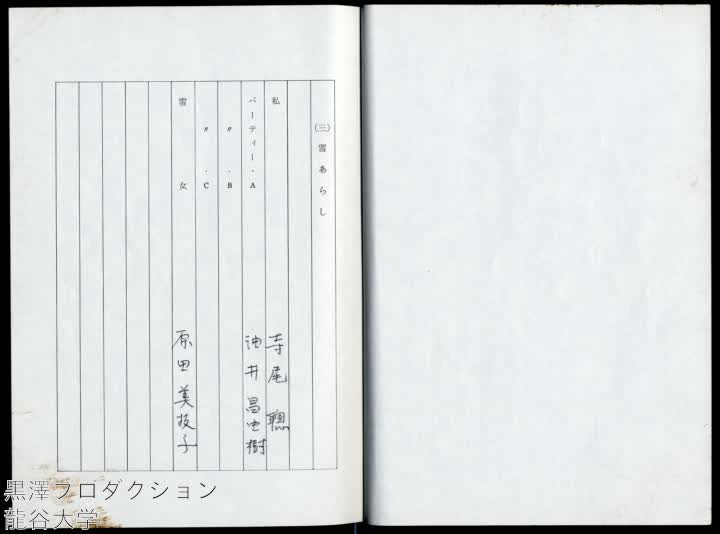 (三)雪あらし
私 寺尾聰
パーティー・A 油井昌由樹
〃 ・B
〃 ・C
雪女 原田美枝子
黒澤プロダクション
龍谷大学